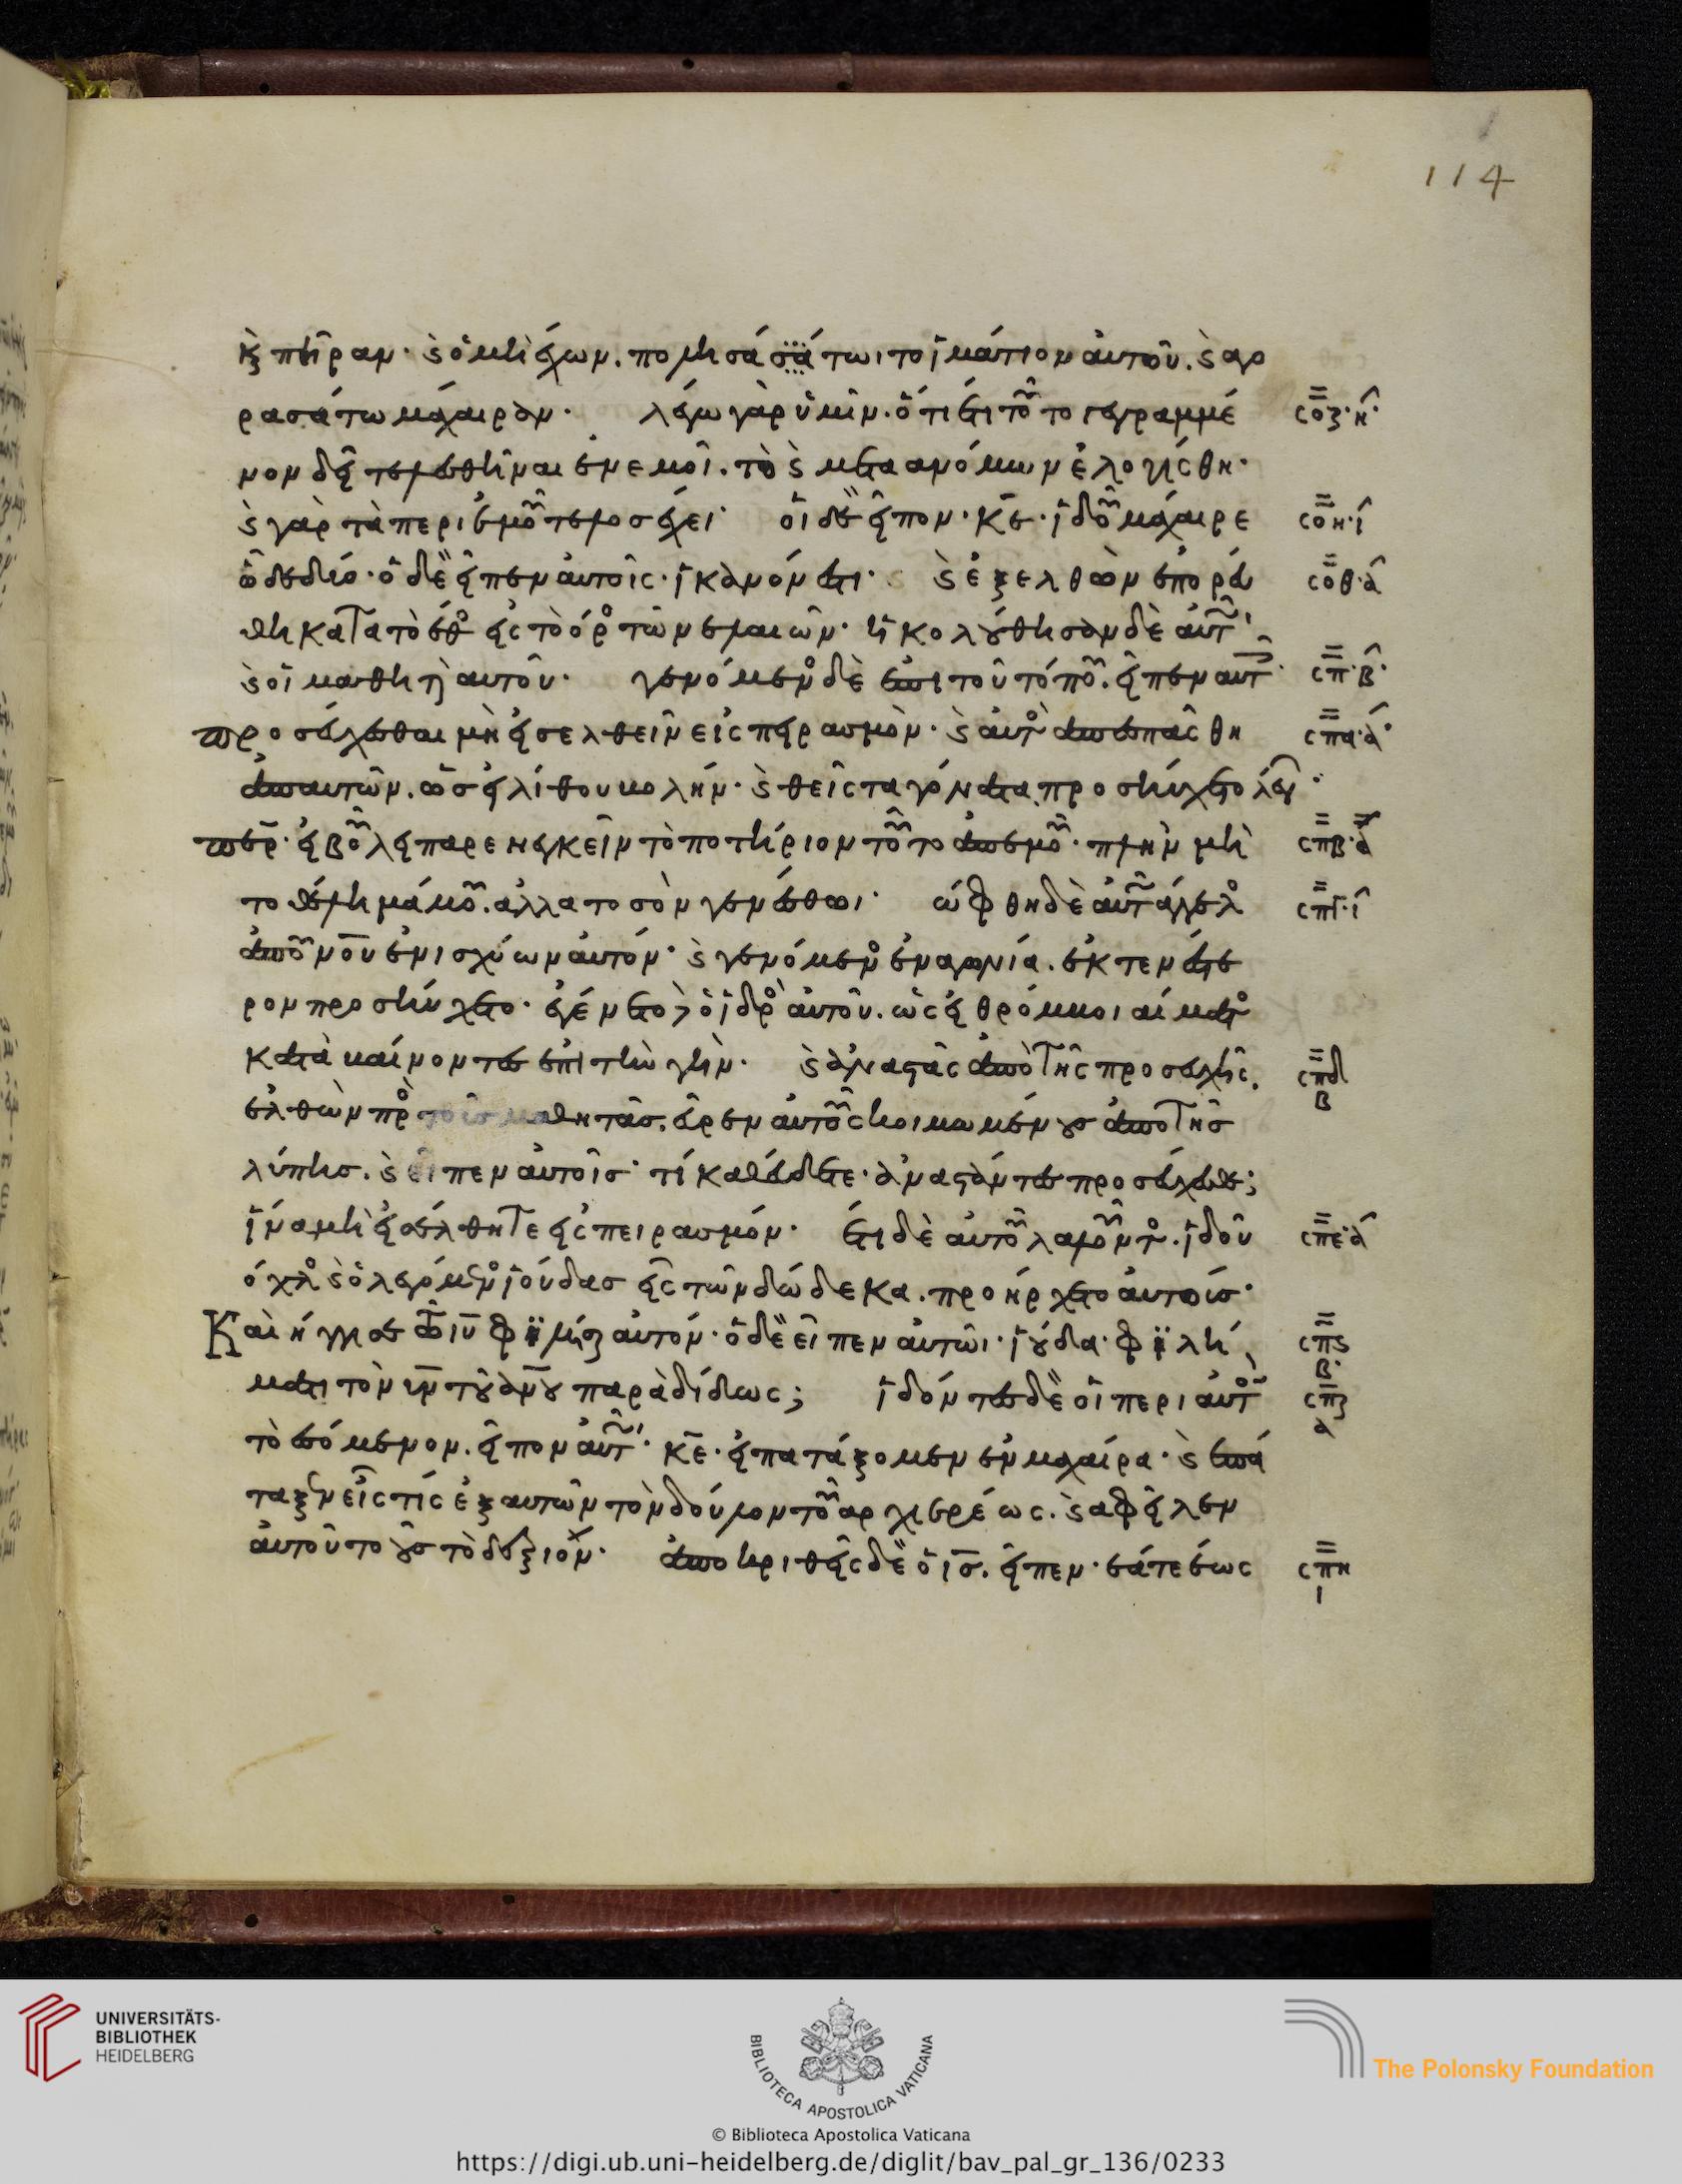 114
κ πήραν· κ ὁ μὴ ἔχων. πολησάσάτωι το ἱμάτιον αὐτοῦ. κ αγο
ρασάτω μάχαιραν· λέγω γὰρ ὑμῖν. ὅτι ἔτι τοῦτο γεγραμμέ ϲοζ·η·
νον δεῖ τελεσθῆναι ἐν εμοὶ. τὸ κ μετα ανόμων ἐλογίσθη·
κ γαρ τὰ περι ἐμοῦ τέλοσ ἔχει· οἱ δὲ εἶπον· κε· ἰδοῦ μάχαιρε ϲοη·ι
ὧδε δύο· ὁ δὲ εἶπεν αὐτοῖς· ἱκανόν ἐστι· κ ἐξελθὼν ἐπορεύ ϲοθ·α
θη κατα τὸ ἔθος εἰς τὸ όρος τῶν ελαιῶν· ἠκολούθησαν δὲ αὐτῶ·
κ οἱ μαθηταὶ αυτοῦ· γενόμενος δὲ ἐπι τοῦ τόπου. εἶπεν αυτοῖς· ϲπ·β·
προσεύχεσθαι μὴ εἰσελθεῖν εἰς πειρασμὸν· κ αὐτὸς ἀπεσπάσθη ϲπα·α·
ἀπ αυτῶν. ὡσεὶ λίθου βολήν· κ θεὶς τα γόνατα προσηύχετο λέγων·
περ· εἰ βούλει παρενεγκεῖν τὸ ποτήριον τοῦτο ἀπ εμοῦ· πλὴν μὴ ϲπβ·α
το θέλημά μου. ἀλλα το σὸν γενέσθωι· ώφθη δὲ αὐτῶ άγγελος ϲπγ·ι
ἀπ οὐνου ἐνισχύων αὐτόν· κ γενόμενος ἐν αγωνία. ἐκτενέστε
ρον προσηύχετο· ἐγένετο δὲ ὁ ἱδρὸς αὐτοῦ. ὡς εἰ θρόμβοι αίματος
καταβαίνοντες επὶ τὴν γῆν· κ ἀναστὰς ἀπὸ τῆς προσευχῆς. ϲπδ β
ελθὼν πρὸς τοὺς μαθητὰσ. εὗρεν αὐτοὺς κοιμωμένους ἀπο τῆσ
λύπησ. κ εἶπεν αὐτοῖσ· τί καθεύδετε· ἀναστάντες προσεύχεσθε;
ἵνα μὴ εἰσέλθητε εἰς πειρασμόν· έτι δὲ αὐτοῦ λαλοῦντος. ἰδοῦ ϲπε·α
όχλος κ ὁ λεγόμενος ϊούδασ εἷς τῶν δώδεκα. προήρχετο αυτοὺσ·
Και ήγγισε τῶ ιυ φιλῆσαι αυτόν· ὁ δὲ ις εἶπεν αὐτῶι· ϊούδα· φιλή ϲπς β·
ματι τὸν υν τοῦ ανου παραδίδως; ϊδόντες δὲ οἱ περι αὐτὸν ϲπζ α
τὸ εσόμενον. εἶπον αὐτῶ· κε· εἰ πατάξομεν ἐν μαχαίρα· κ ἐπά
ταξεν εἷς τίς ἐξ αυτῶν τὸν δούλον τοῦ αρχιερέως. κ αφεῖλεν
ἀυτοῦ το οὖσ τὸ δεξιόν· ἀποκριθεὶς δὲ ὁ ισ. εἶπεν· ἐάτε έως ϲπη ι
UNIVERSITÄTS-
BIBLIOTHEK
HEIDELBERG
BIBLIOTECA APOSTOLICA VATICANA
The Polonsky Foundation
© Biblioteca Apostolica Vaticana
https://digi.ub.uni-heidelberg.de/diglit/bav_pal_gr_136/0233